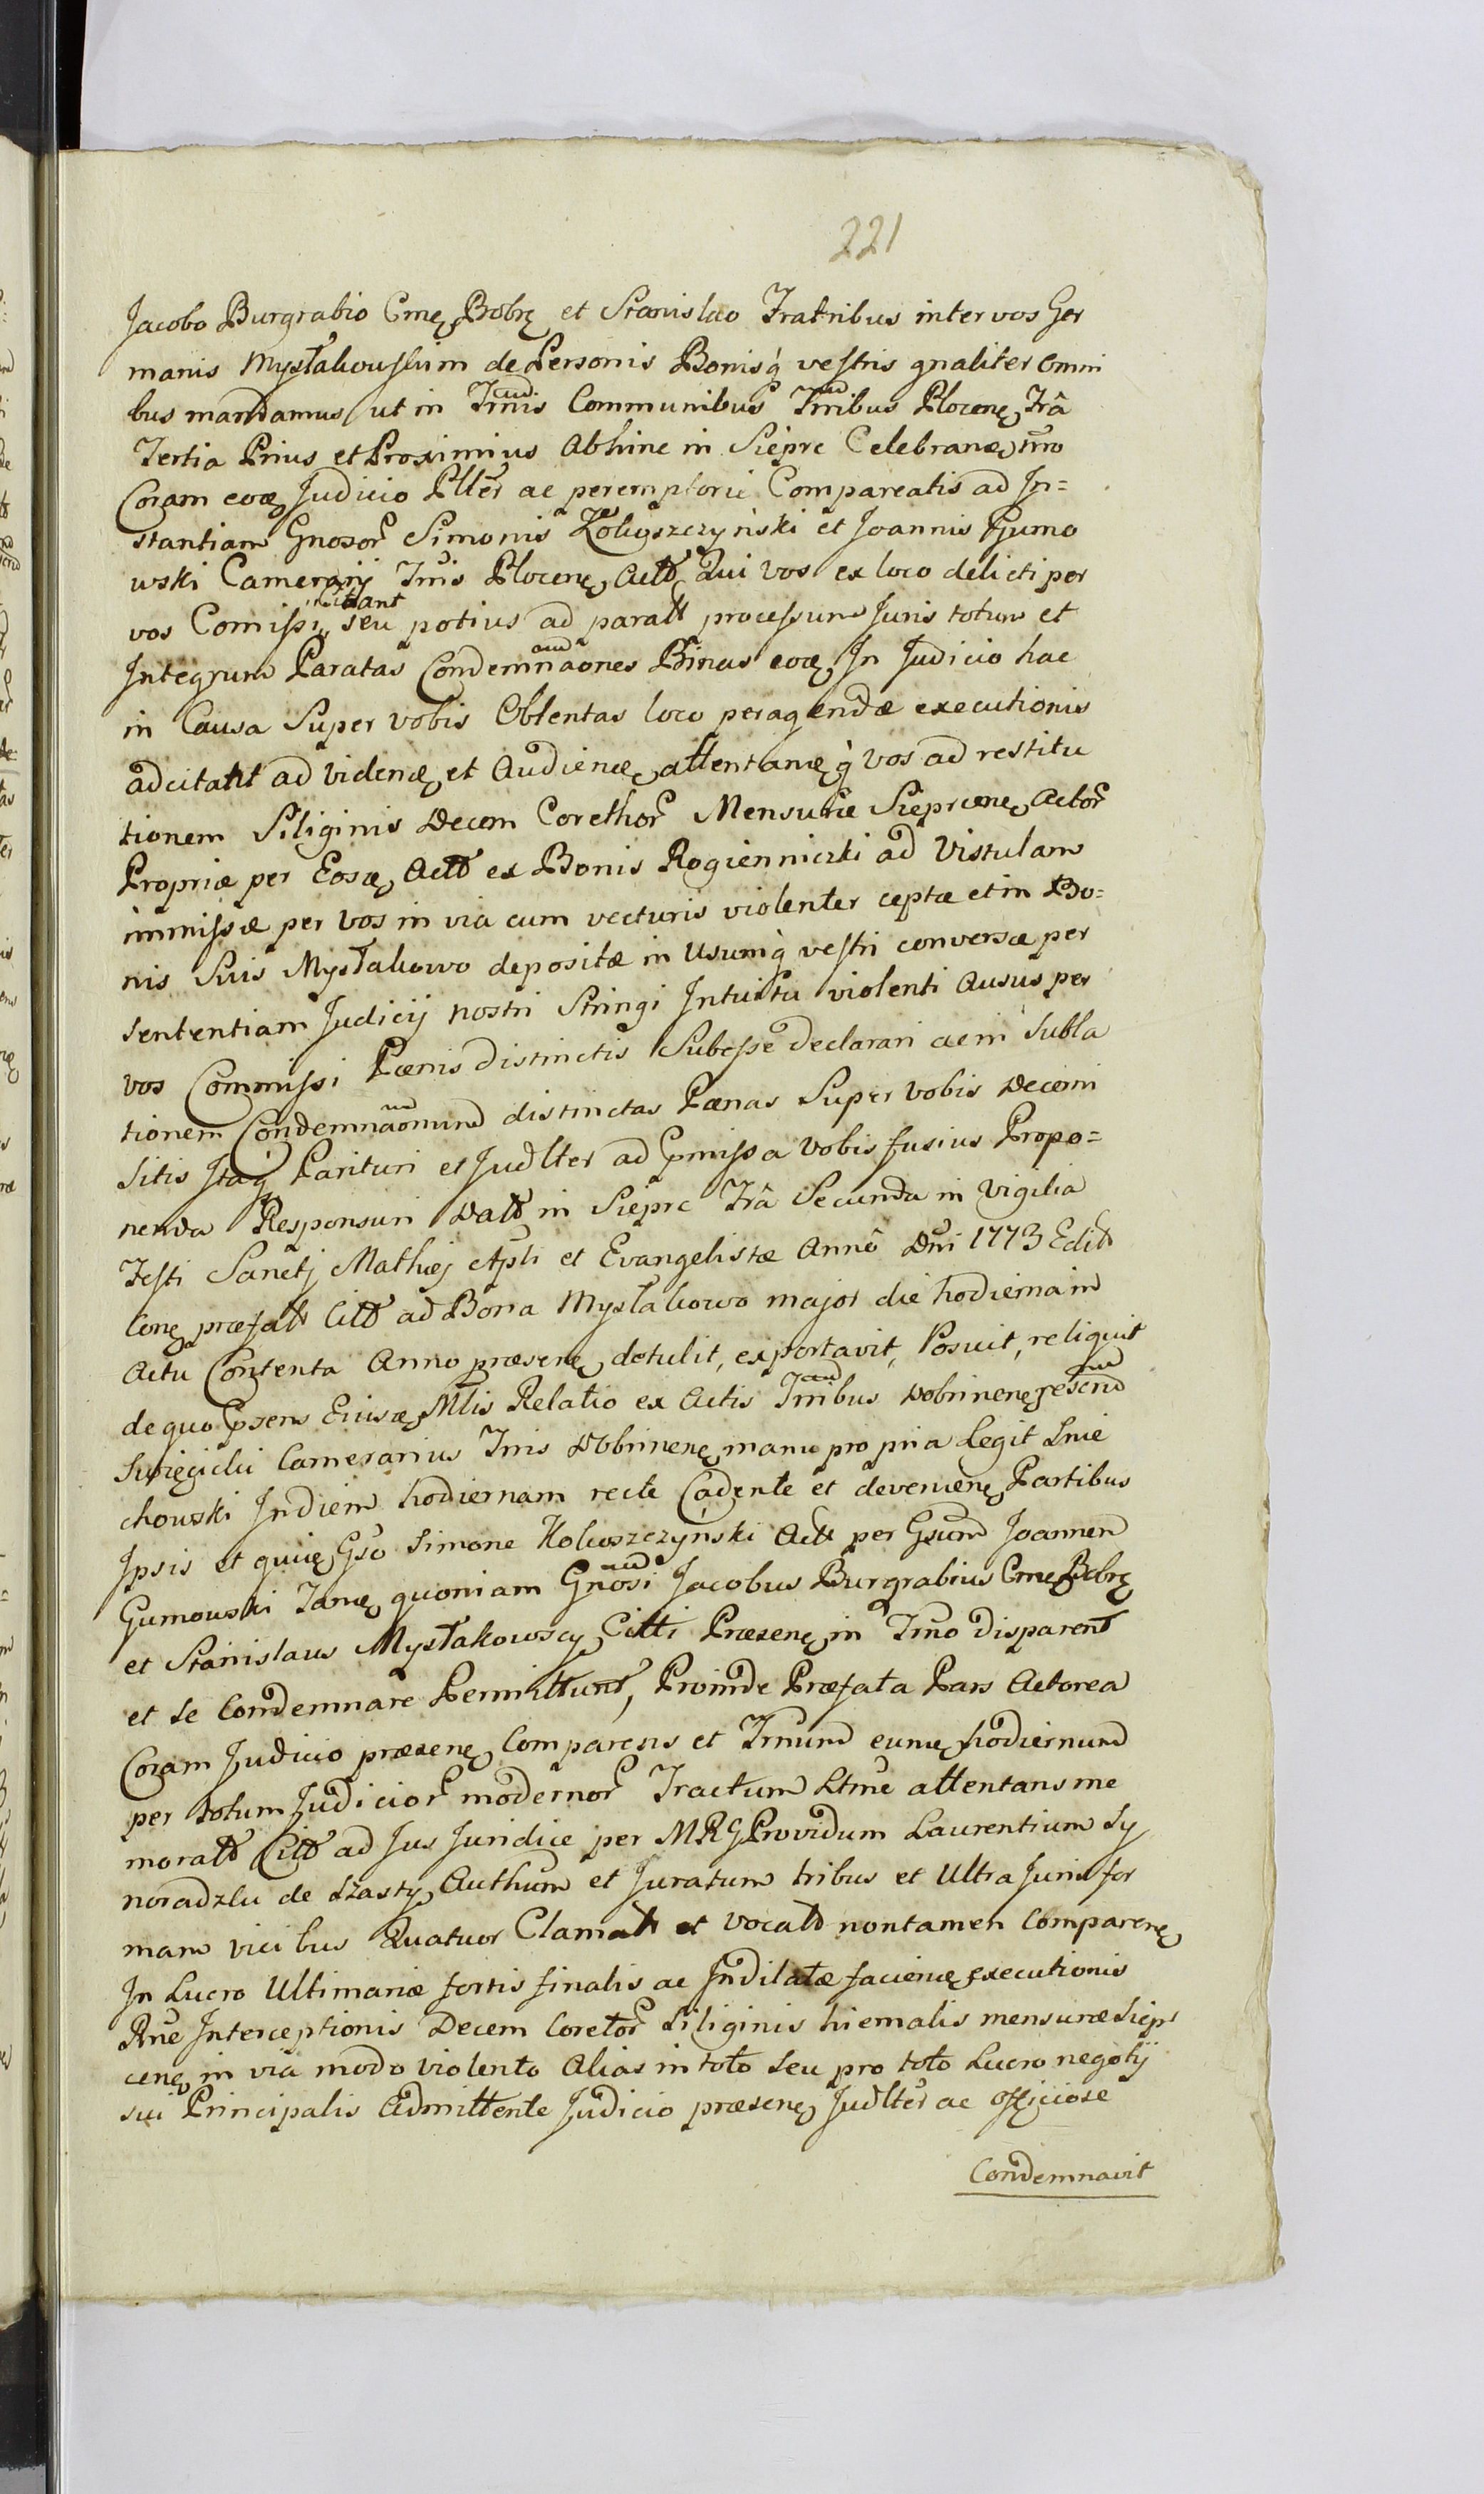 221
Jacobo Burgrabio Cmę Bobrę et Stanislao Fratribus inter vos Ger
manis Mysłakowskim de Personis Bonisq̀ vestris gnaliter omni
bus mandamus ut in Tmis Communibus Tmibus Plocenę Frâ
Tertia Prius et Proximius Abhinc in Sieprc Celebranæ, tmo
Coram eoæ Judicio Plter ac peremptorie Compareatis ad In=
stantiam Gnosor Simonis Koluszczyński et Joannis Gumo
wski Camerarij Tmis Plocenę, Actt, Qui vos ex loco delicti per
vos Comissi, Citant seu potius ad paratt processum Juris totum et
Integrum Paratas Condemnaones Binas eoæ In Judicio hac
in Causa Super vobis Obtentas loco peragendæ executionis
adcitatt ad videnæ et Audienæ, attentanæ q̀ vos ad restitu
tionem Siliginis Decem Corethor Mensuræ Sieprcenę Actor
Propriæ per Eosæ, Actt ex Bonis Rogienniczki ad Vistulam
immissæ per vos in via cum vecturis violenter ceptæ et in Bo=
nis Suis Mysłakowo depositæ in Usumq̀ vestri conversæ per
sententiam Judicij nostri Stringi Intuitu violenti Ausus per
vos Commissi Pœnis distinctis Subesse declarari ac in Subla
tionem Condemnaonum distinctas Pœnas Super vobis Decerni
Sitis Itaq̀ Parituri et Judlter ad Pmissa vobis fusius Propo=
nenda Responsuri Datt in Sieprc Frâ Secunda in Vigilia
Festi Sanctj Mathæj Apli et Evangelistæ Annô Dni 1773 Editt
Conę præfatt Citt ad Bona Mysłakowo major die hodierna in
Actu Contenta Anno præsenę detulit, exportavit, Posuit, reliquit
de quo Pprsens Eiusæ, Mlis Relatio ex Actis Tmibus Dobrinenę
Camerarius Tmis Dobrinenę manu propria Legit Snie
chowski In diem hodiernam recte Cadente et devenienę Partibus
Ipsis et quię Gso Simone Koluszczynski Actt per Gsum Joannem
Gumowski Tanę, quoniam Gnosi Jacobus Burgrabius Cmę Bobrę
et Stanislaus Mysłakowscy Citti Præsenę in Tmo disparent
et se Condemnare Permittunt, Proinde Præfata Pars Actorea
Coram Judicio præsenę Comparens et Tmum eunę hodiernum
per totum Judicior modernor Tractum Ltme attentans me
moratt Citt ad Jus Juridice per MRG Providum Laurentium Sy
noradzki de Szasty, Authum et Juratum tribus et Ultra Juris for
mam vicibus Quatuor Clamatt et vocatt non tamen Comparenę
In Lucro Ultimariæ fortis finalis ac Indilatæ facienæ executionis
Rne Interceptionis Decem Coretor Siliginis hiemalis mensuræ Siepr
cenę in via modo violento Alias in toto seu pro toto Lucro negotij
sui Principalis Admittente Judicio præsenę Judlter ac officiose
Condemnavit